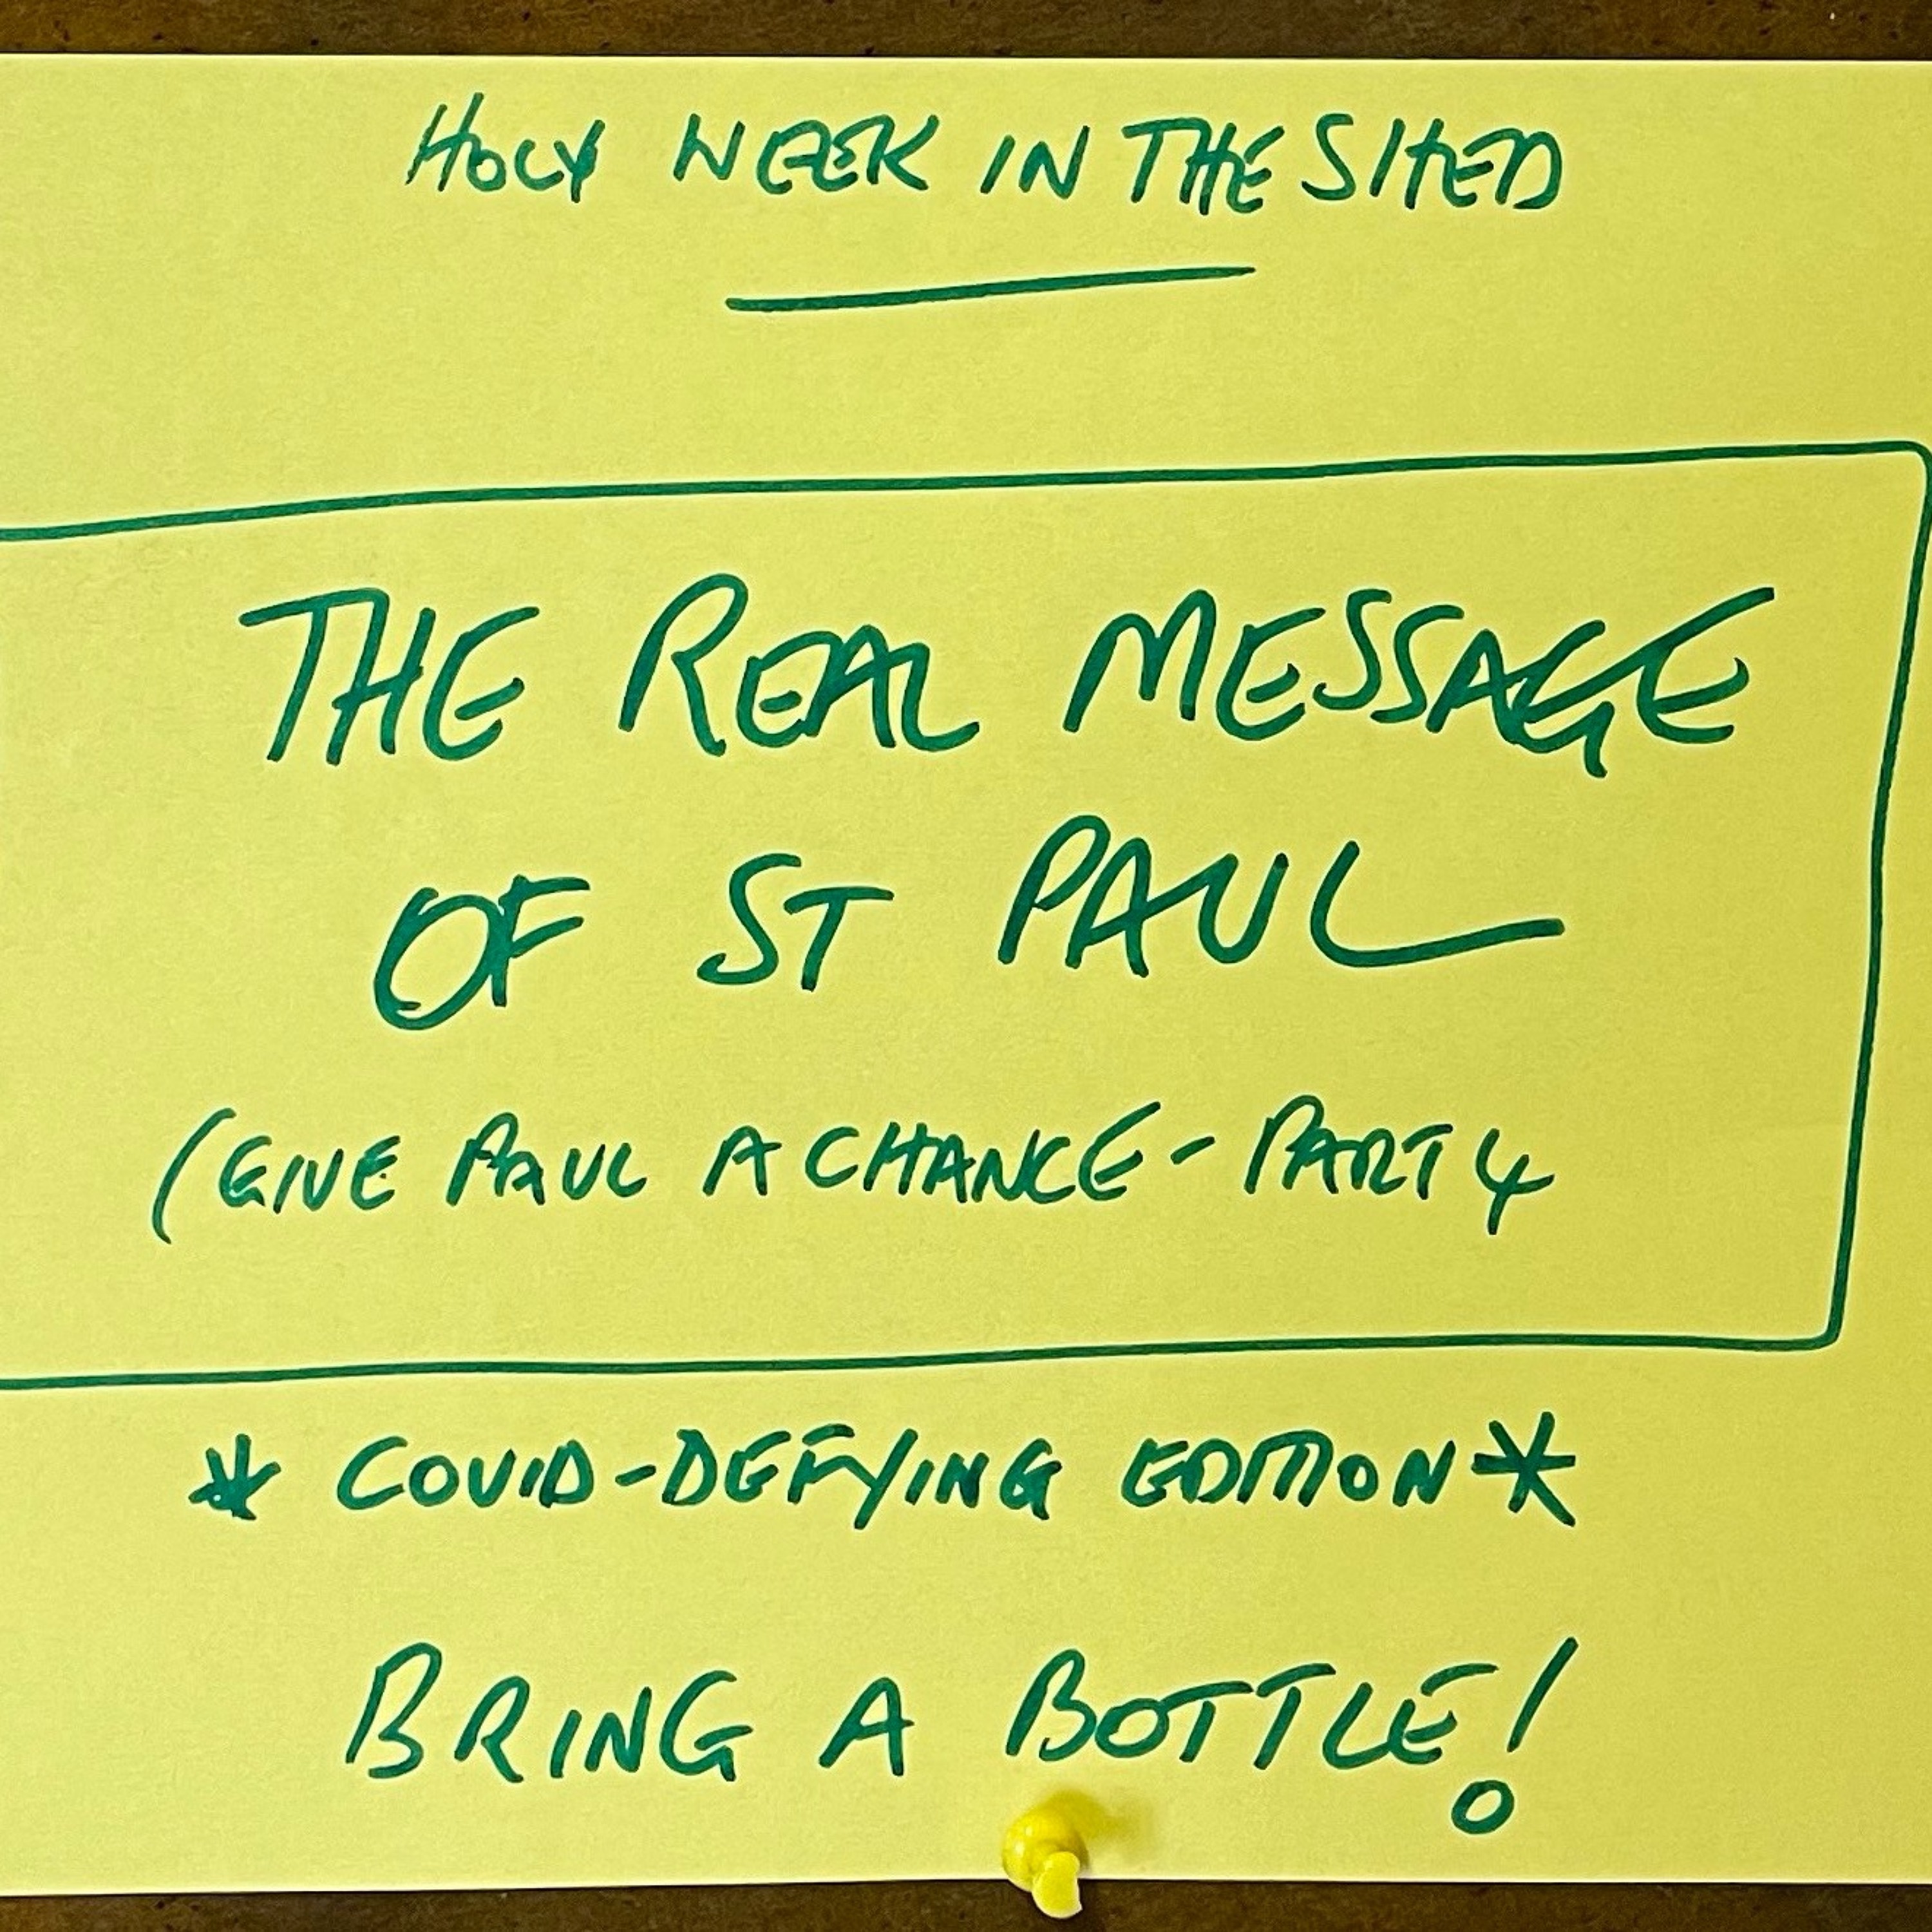 HOLY WEEK IN THE SHED
THE REAL MESSAGE
OF ST PAUL
(GIVE PAUL A CHANCE - PART 4
* COVID-DEFYING EDITION *
BRING A BOTTLE!